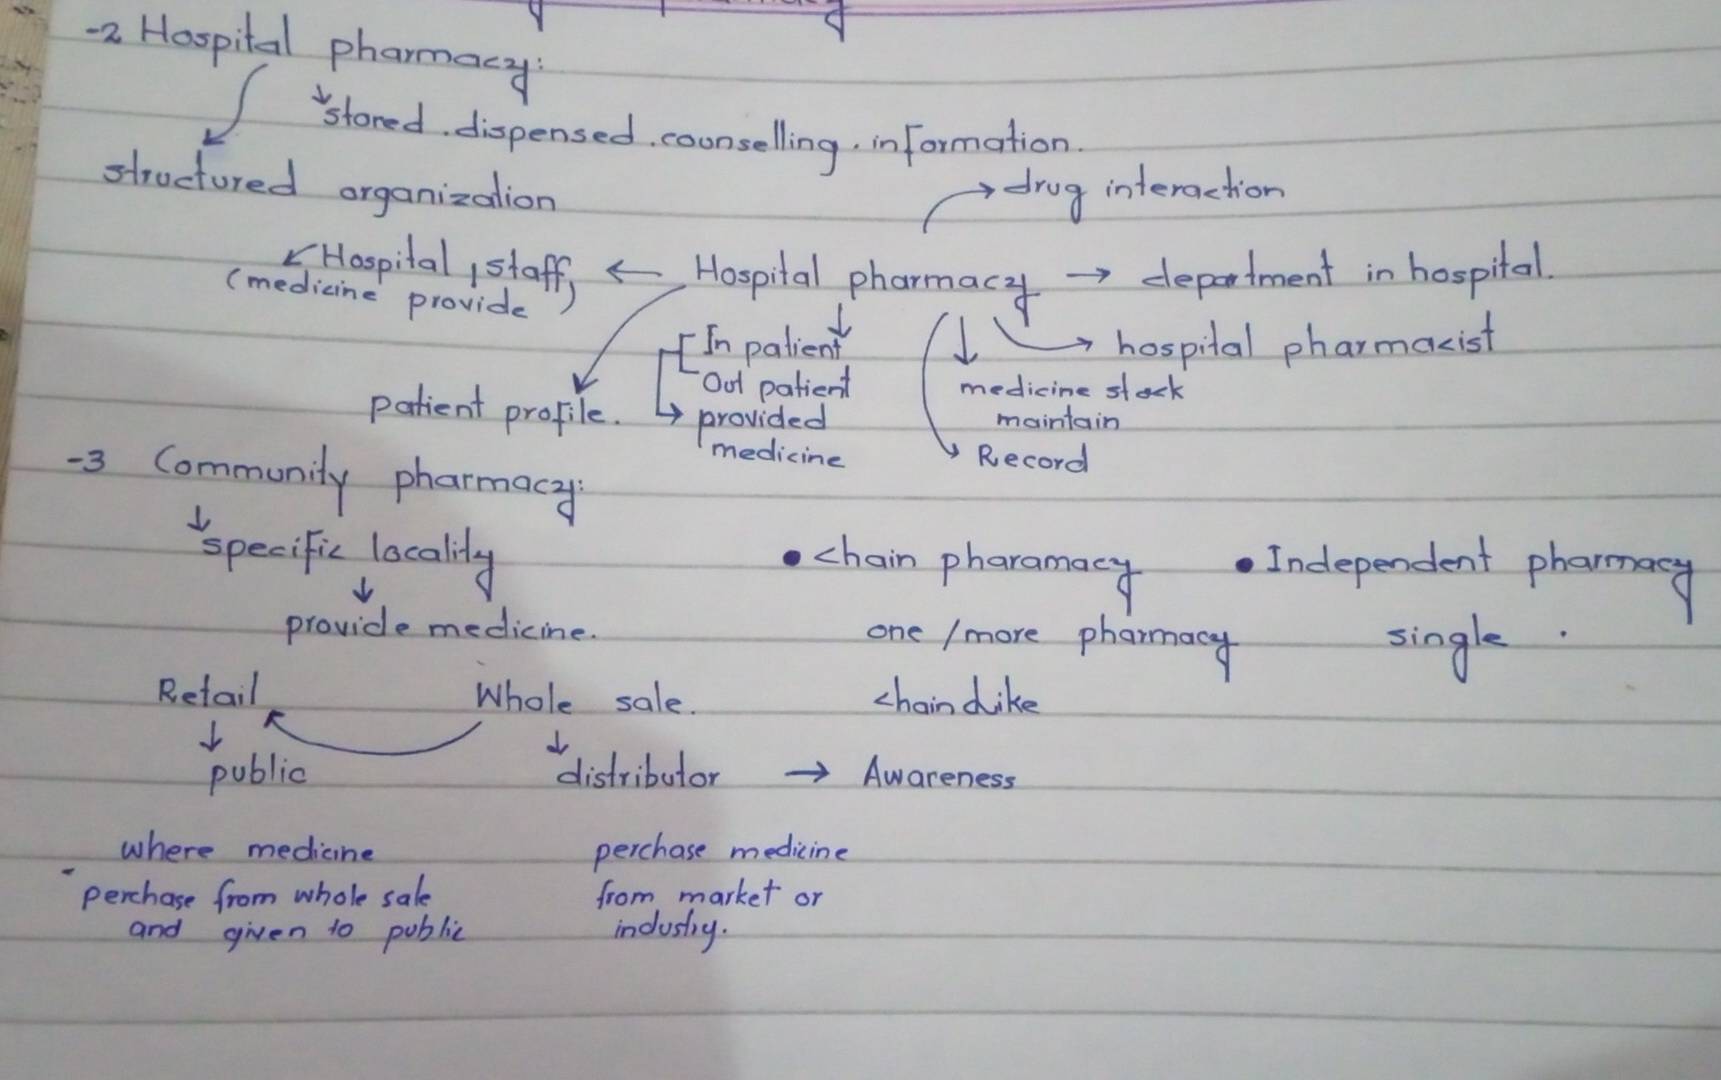 -2 Hospital pharmacy:
↓ stored . dispensed . counselling . information.
structured organization
→ drug interaction
Hospital, staff, ← Hospital pharmacy → department in hospital.
(medicine provide)
In patient → hospital pharmacist
Out patient medicine stock
patient profile. → provided maintain
medicine → Record
-3 Community pharmacy:
↓ specific locality • chain pharamacy • Independent pharmacy
↓
provide medicine. one / more pharmacy single .
Retail Whole sale. chain like
↓ ↓
public distributor → Awareness
where medicine perchase medicine
perchase from whole sale from market or
and given to public industry.